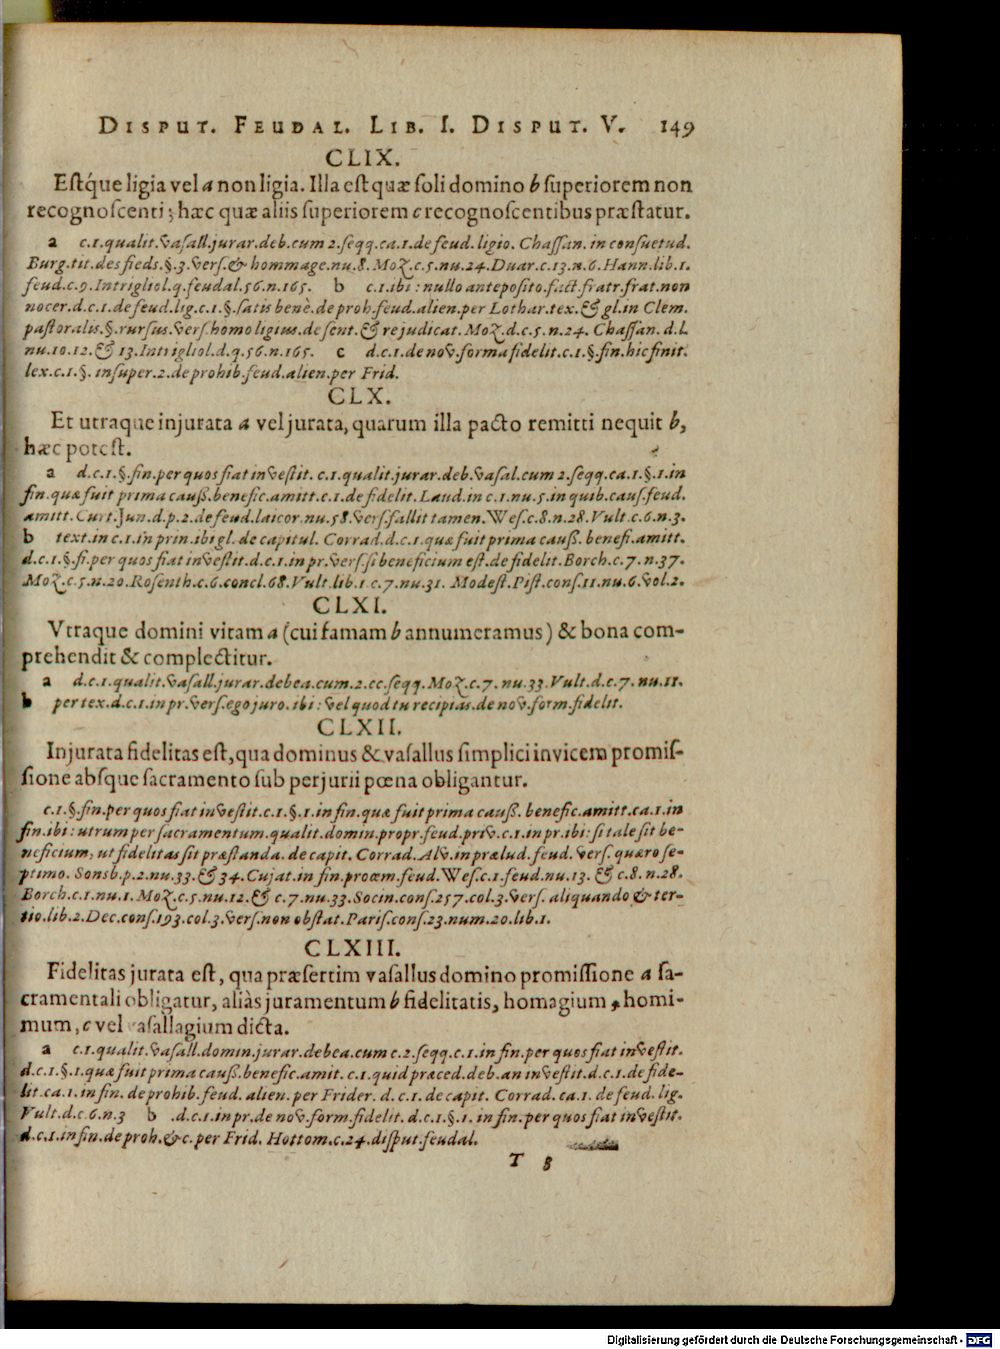 DISPUT. FEUDAL. LIB. I. DISPUT. V. 149
CLIX.
Estq́ue ligia vel a non ligia. Illa est quæ soli domino b superiorem non
recognoscenti; hæc quæ aliis superiorem c recognoscentibus præstatur.
a c.1.qualit.vasall.jurar.deb.cum 2.seqq.ca.1.de feud. ligio. Chassan. in consuetud.
Burg.tit.des fieds.§.3.vers.& hommage.nu.8. Moz.c.5.nu.24.Duar.c.13.n.6.Hann.lib.1.
feud.c.9.Intrigliol.q.feudal.56.n.165. b c.1.ibi: nullo anteposito.fact.fratr.frat.non
nocer.d.c.1.de feud.lig.c.1.§.satis benè.de proh.feud.alien.per Lothar.tex.& gl.in Clem.
pastoralis.§.rursus.vers.homo ligius.de sent.& re judicat.Moz.d.c.5.n.24. Chassan.d.l.
nu.10.12.& 13.Intrigliol.d.q.56.n.165. c d.c.1.de nov.forma fidelit.c.1.§.fin.hic finit.
lex.c.1.§. insuper.2.de prohib.feud.alien.per Frid.
CLX.
Et utraque injurata a vel jurata, quarum illa pacto remitti nequit b,
hæc potest.
a d.c.1.§.fin.per quos fiat investit. c.1.qualit.jurar.deb.vasal.cum 2.seqq.ca.1.§.1.in
fin.quæ fuit prima cauß.benefic.amitt.c.1.de fidelit.Laud.in c.1.nu.5.in quib.caus.feud.
amitt.Curt.Jun.d.p.2.de feud.laicor.nu.58.vers.fallit tamen.Wes.c.8.n.28.Vult.c.6.n.3.
b text.in c.1.in prin.ibi gl.de capitul. Corrad.d.c.1.quæ fuit prima cauß. benefi.amitt.
d.c.1.§.fi.per quos fiat investit.d.c.1.in pr.vers.si beneficium est.de fidelit.Borch.c.7.n.37.
Moz.c.5.n.20.Rosenth.c.6.concl.68.Vult.lib.1 c.7.nu.31. Modest.Pist.cons.11.nu.6.vol.2.
CLXI.
Vtraque domini vitam a (cui famam b annumeramus) & bona com-
prehendit & complectitur.
a d.c.1.qualit.vasall.jurar.debea.cum.2.cc.seqq.Moz.c.7.nu.33.Vult.d.c.7.nu.11.
b per tex.d.c.1.in pr.vers.ego juro.ibi: vel quod tu recipias.de nov.form.fidelit.
CLXII.
Injurata fidelitas est, qua dominus & vasallus simplici invicem promis-
sione absque sacramento sub perjurii pœna obligantur.
c.1.§.fin.per quos fiat investit.c.1.§.1.in fin.quæ fuit prima cauß. benefic.amitt.ca.1.in
fin.ibi: utrum per sacramentum.qualit.domin.propr.feud.priv.c.1.in pr.ibi: si tale sit be-
neficium, ut fidelitas sit præstanda. de capit. Corrad.Alv.in prælud.feud. vers. quæro se-
ptimo. Sonsb.p.2.nu.33.& 34.Cujat.in fin.proœm.feud.Wes.c.1.feud.nu.13. & c.8.n.28.
Borch.c.1.nu.1.Moz.c.5.nu.12.& c.7.nu.33.Socin.cons.257.col.3.vers. aliquando & ter-
tio.lib.2.Dec.cons.193.col.3.vers.non obstat.Paris.cons.23.num.20.lib.1.
CLXIII.
Fidelitas jurata est, qua præsertim vasallus domino promissione a sa-
cramentali obligatur, aliàs juramentum b fidelitatis, homagium, homi-
mum, c vel vasallagium dicta.
a c.1.qualit.vasall.domin.jurar.debea.cum c.2.seqq.c.1.in fin.per quos fiat investit.
d.c.1.§.1.quæ fuit prima cauß.benefic.amit. c.1.quid præced.deb.an investit.d.c.1.de fide-
lit.ca.1.in fin. de prohib.feud. alien.per Frider. d.c.1. de capit. Corrad. ca.1.de feud.lig.
Vult.d.c.6.n.3 b .d.c.1.in pr.de nov.form.fidelit. d.c.1.§.1. in fin.per quos fiat investit.
d.c.1.in fin.de proh.&c.per Frid. Hottom.c.24.disput.feudal.
T 8
Digitalisierung gefördert durch die Deutsche Forschungsgemeinschaft - DFG